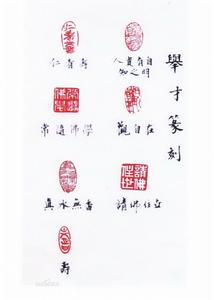 舉才篆刻
人貴有自
知之明
仁者壽
觀自在
常隨佛學
請佛住世
真水無香
壽